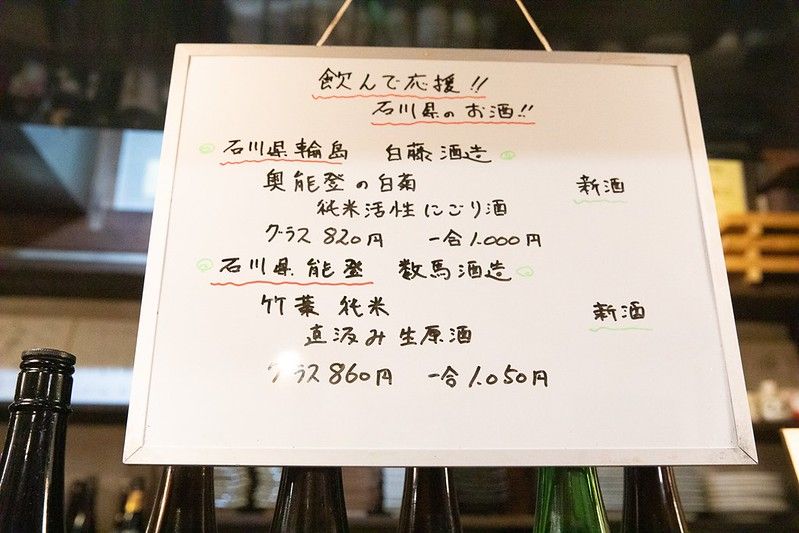 飲んで応援!!
石川県のお酒!!
石川県輪島 白藤酒造
奥能登の白菊 新酒
純米活性にごり酒
グラス820円 一合1.000円
石川県能登 数馬酒造
竹葉 純米 新酒
直汲み生原酒
グラス860円 一合1.050円